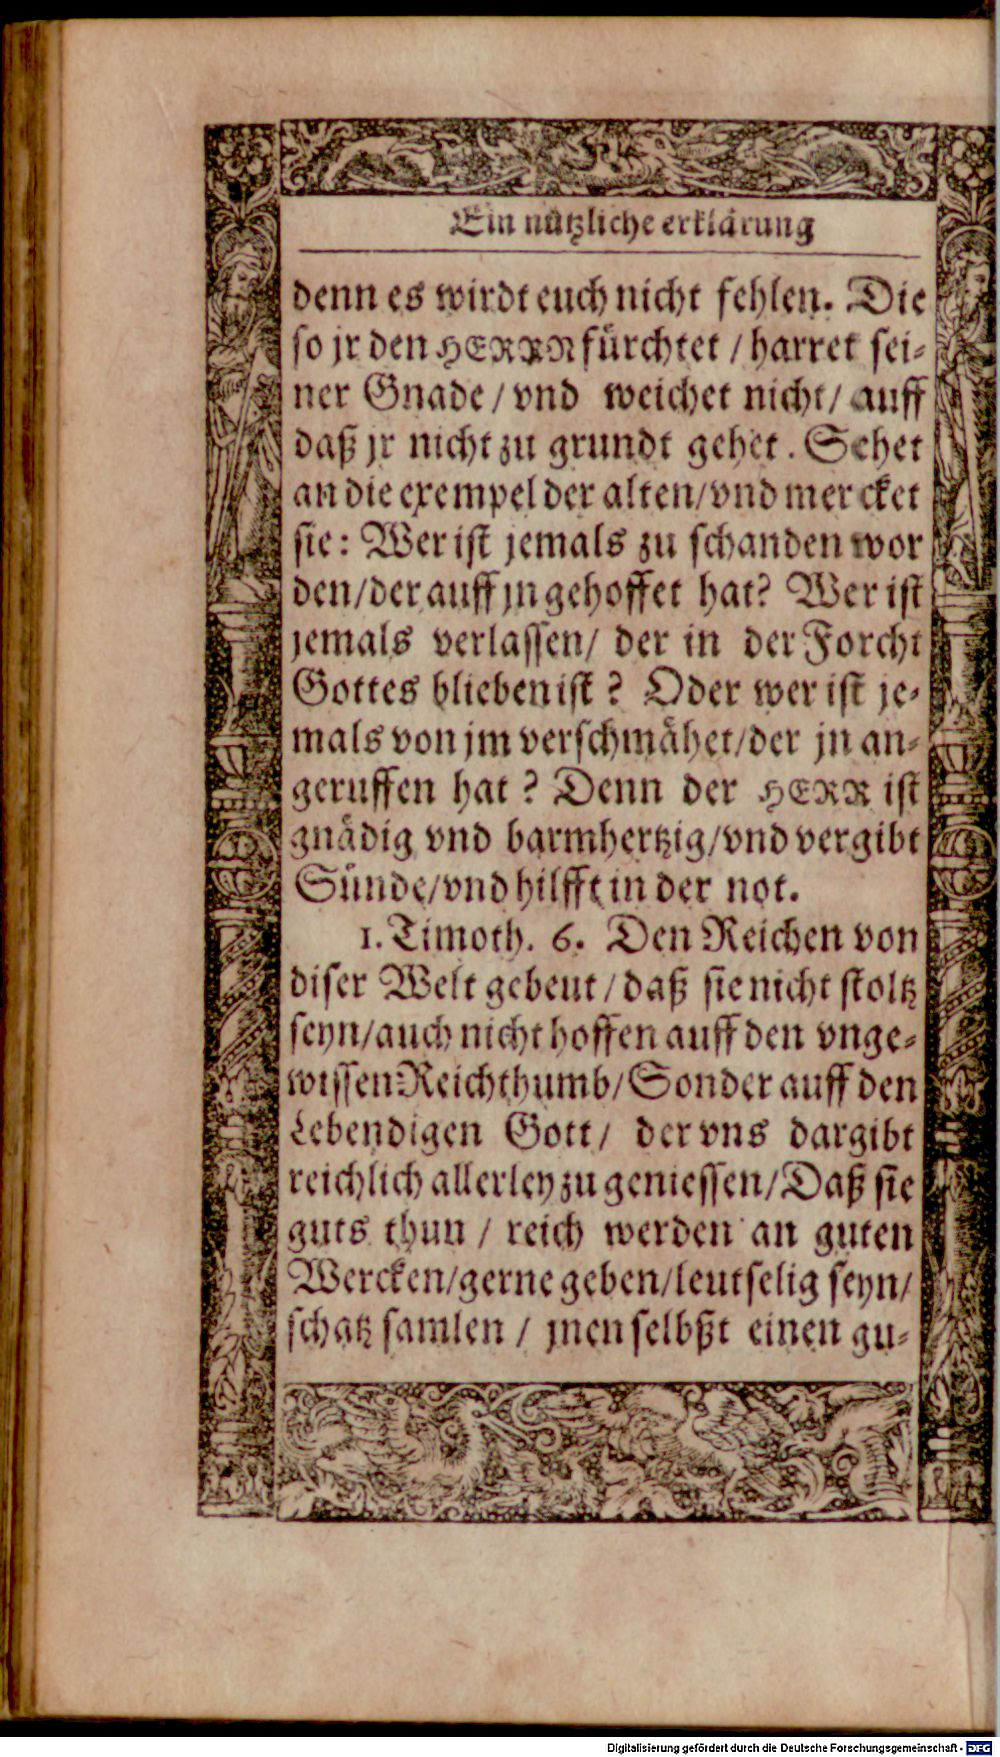 Ein nützliche erklärung
denn es wirdt euch nicht fehlen. Die
so jr den HERRN fürchtet / harret sei-
ner Gnade / vnd weichet nicht / auff
daß jr nicht zu grundt gehet. Sehet
an die exempel der alten / vnd mercket
sie: Wer ist jemals zu schanden wor
den / der auff jn gehoffet hat? Wer ist
jemals verlassen / der in der Forcht
Gottes blieben ist? Oder wer ist je-
mals von jm verschmähet / der jn an-
geruffen hat? Denn der HERR ist
gnädig vnd barmhertzig / vnd vergibt
Sünde / vnd hilfft in der not.
1. Timoth. 6. Den Reichen von
diser Welt gebeut / daß sie nicht stoltz
seyn / auch nicht hoffen auff den vnge-
wissen Reichthumb / Sonder auff den
Lebendigen Gott / der vns dargibt
reichlich allerley zu geniessen / Daß sie
guts thun / reich werden an guten
Wercken / gerne geben / leutselig seyn /
schatz samlen / jnen selbßt einen gu-
Digitalisierung gefördert durch die Deutsche Forschungsgemeinschaft - DFG